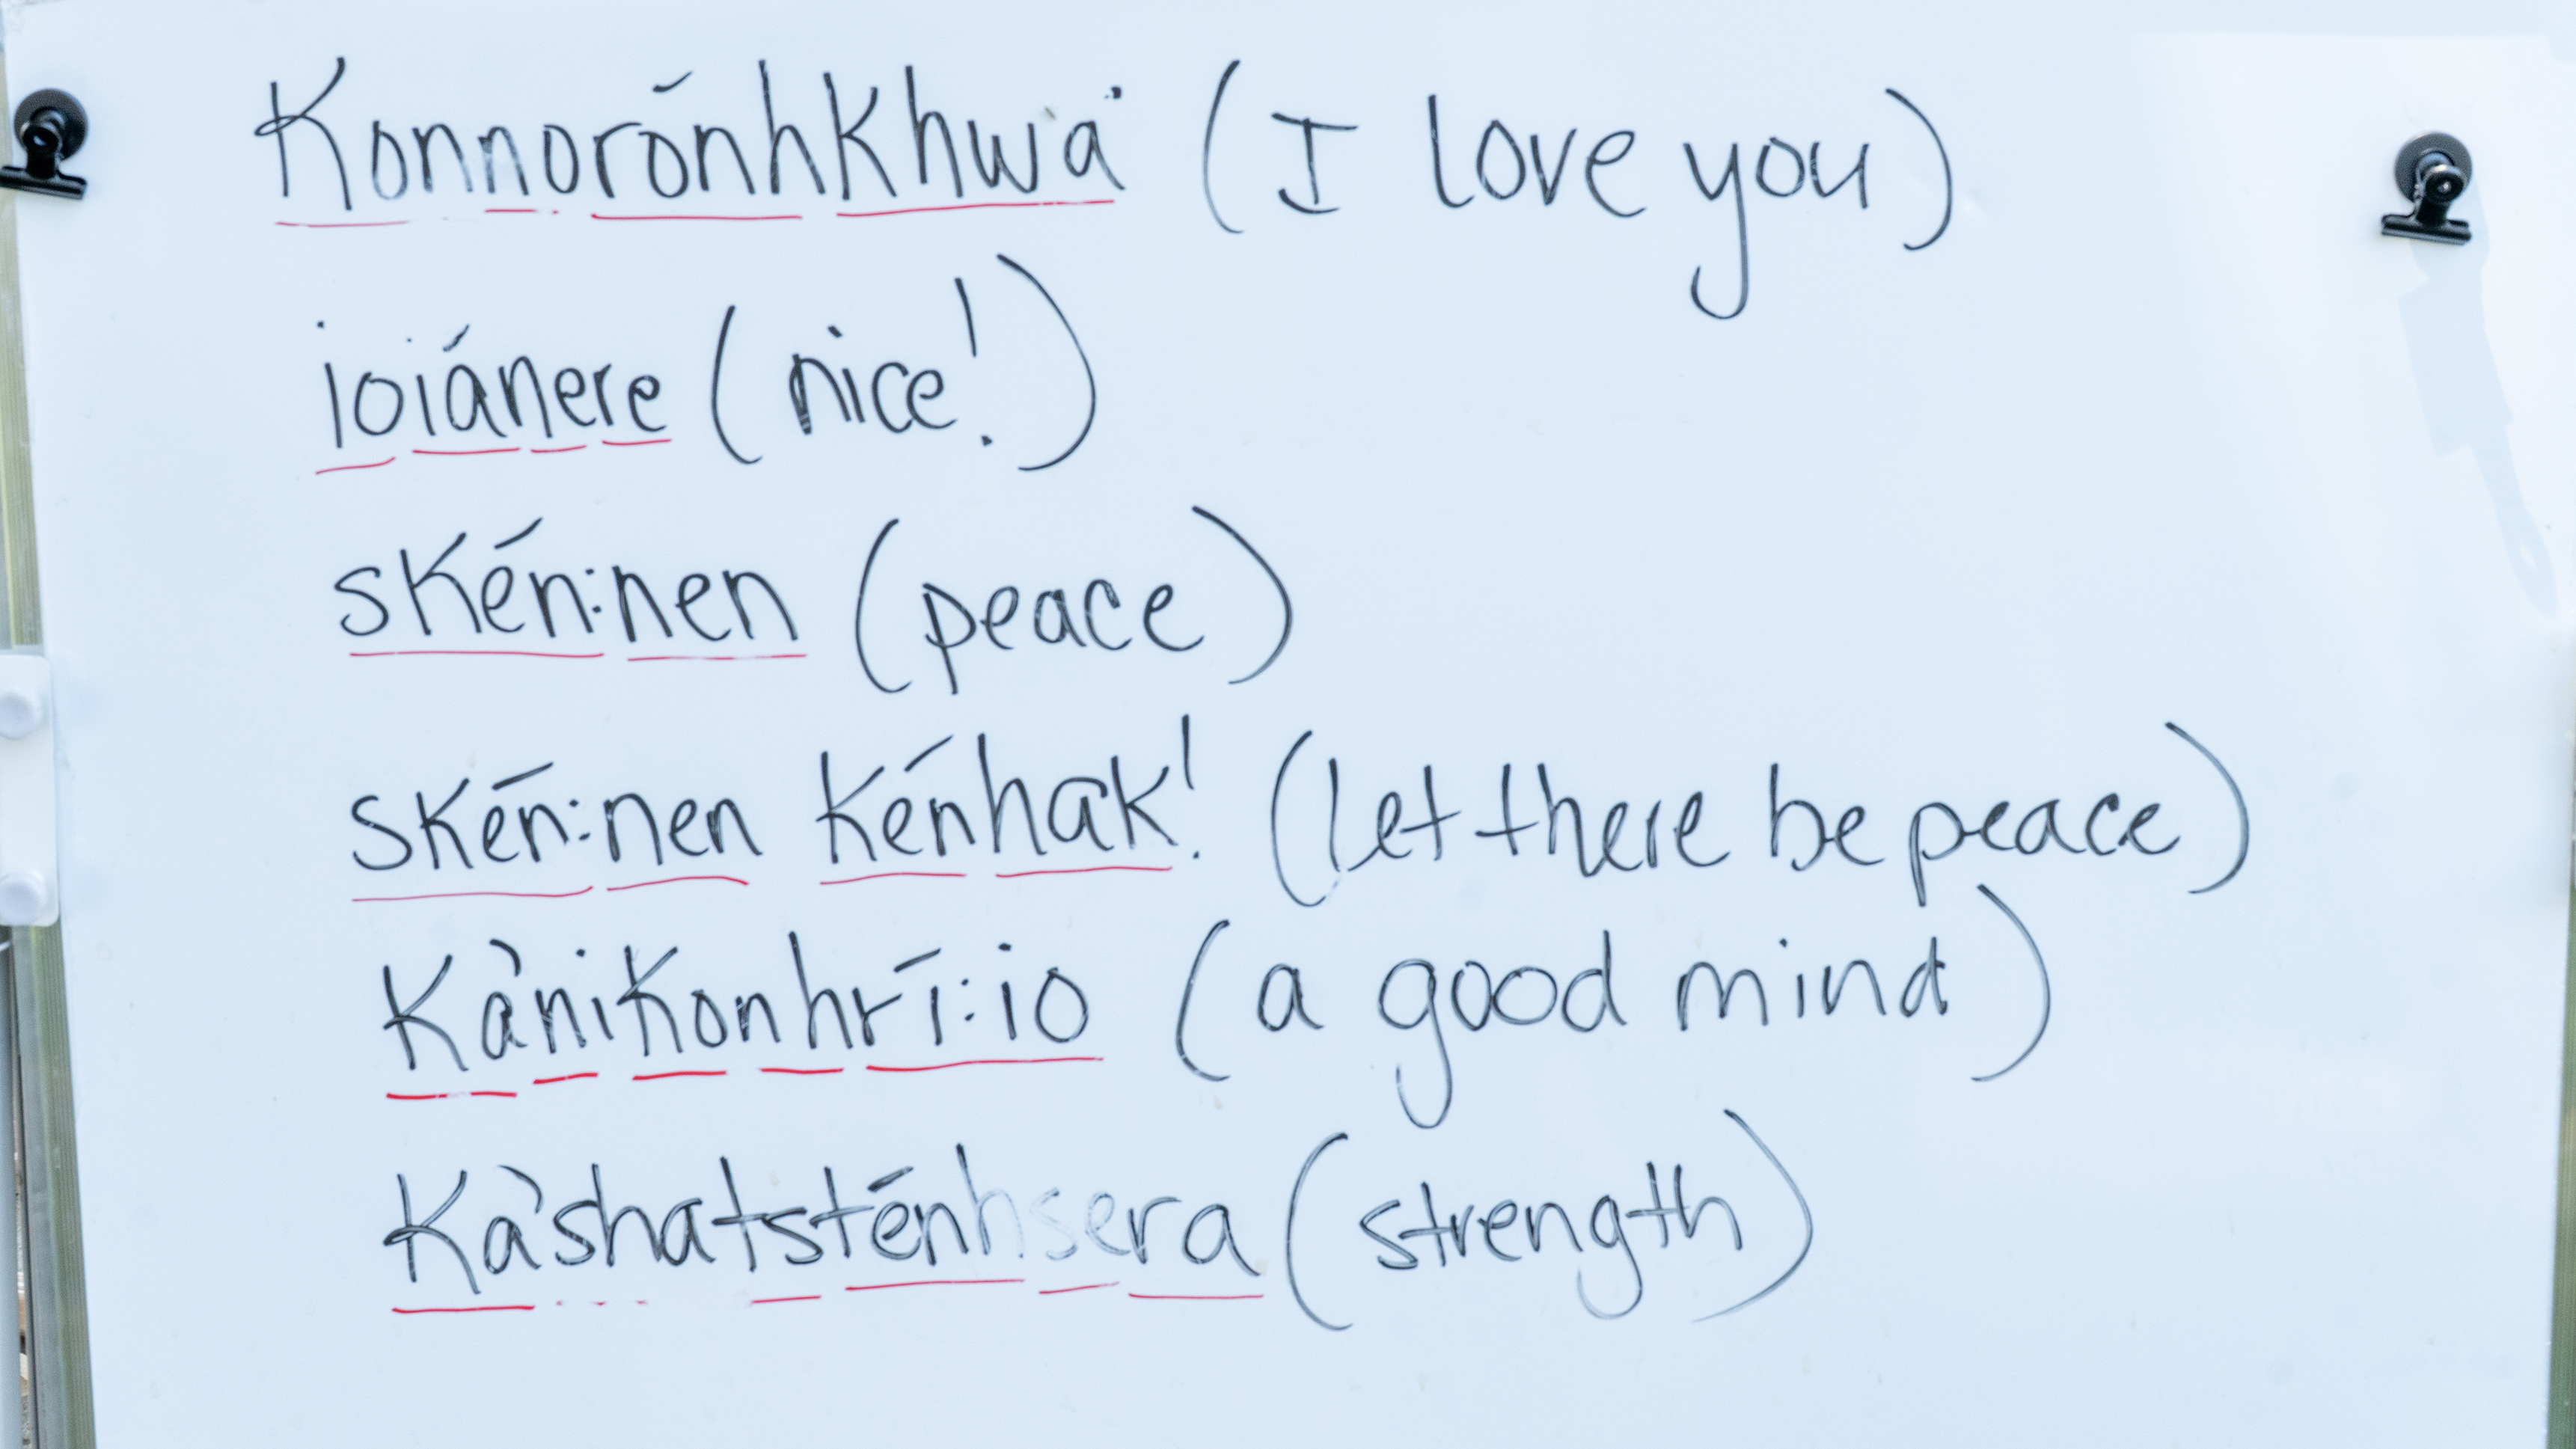 Konnorónhkhwa' (I love you)
ioiánere (nice!)
skén:nen (peace)
skén:nen kénhak! (let there be peace)
Kà'nikonhrí:io (a good mind)
Kà'shatsténhsera (strength)